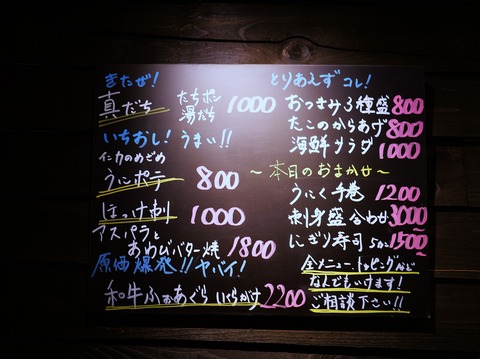 きたぜ!
真だち たちポン 湯だち 1000
いちおし! うまい!!
インカのめざめ
うにポテ 800
ほっけ刺 1000
アスパラと
あわびバター焼 1800
原価爆発!! ヤバイ!
和牛ふぉあぐら いくらがけ 2200
とりあえず コレ!
おつまみ3種盛 800
たこのからあげ 800
海鮮サラダ 1000
~本日のおまかせ~
うにく手巻 1200
刺身盛合わせ 3000~
にぎり寿司 5カン 1500~
全メニュートッピングなど
なんでもいけます!
ご相談下さい!!